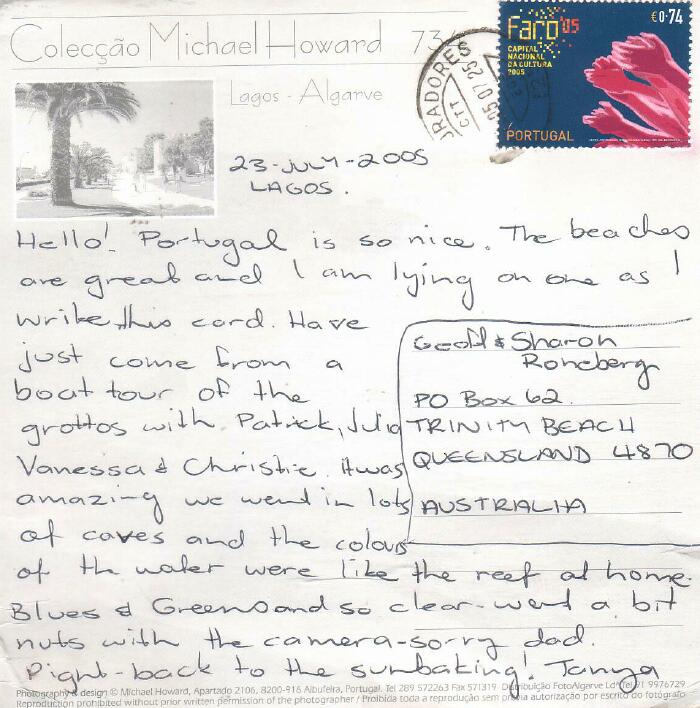 Colecção Michael Howard 73
Lagos - Algarve
Faro'05
€0.74
CAPITAL
NACIONAL
DA CULTURA
2005
PORTUGAL
URADORES
CTT
05 07 25
23-JULY-2005
LAGOS.
Hello! Portugal is so nice. The beaches
are great and I am lying on one as I
write this card. Have
just come from a
boat tour of the
grottos with Patrick, Julia
Vanessa & Christie. It was
amazing we went in lots
of caves and the colours
of the water were like the reef at home.
Blues & Greens and so clear-went a bit
nuts with the camera-sorry dad.
Right-back to the sunbaking! Tanya
Geoff & Sharon
Roneberg
PO Box 62.
TRINITY BEACH
QUEENSLAND 4870
AUSTRALIA
Photography & design © Michael Howard, Apartado 2106, 8200-916 Albufeira, Portugal. Tel 289 572263 Fax 571319 Distribuição FotoAlgarve Ldª Tel 91 9976729
Reproduction prohibited without prior written permission of the photographer / Proibida toda a reprodução sem prévia autorização por escrito do fotógrafo